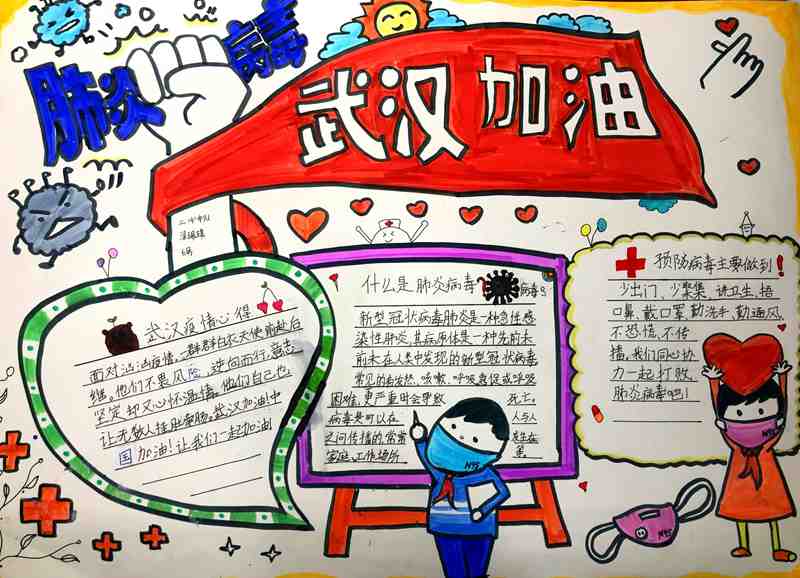 肺炎病毒
武汉加油
武汉疫情心得
面对汹汹疫情,一群群白衣天使前赴后
继。他们不畏风险,逆向而行,意志
坚定却又心怀温情。他们自己也
让无数人挂肚牵肠。武汉加油!中
国加油!让我们一起加油
什么是肺炎病毒
病毒
新型冠状病毒肺炎是一种急性感
染性肺炎,其病原体是一种先前未
前未在人类中发现的新型冠状病毒
常见的有发热、咳嗽、呼吸急促或呼吸
困难,更严重时会导致 死亡。
病毒是可以在 人与人
之间传播的,常常 发生在
家庭、工作场所 里
预防病毒主要做到!
少出门、少聚集、讲卫生、捂
口鼻、戴口罩、勤洗手、勤通风
不恐慌、不传
播,我们同心协
力一起打败
肺炎病毒吧!
N95
N95
N95